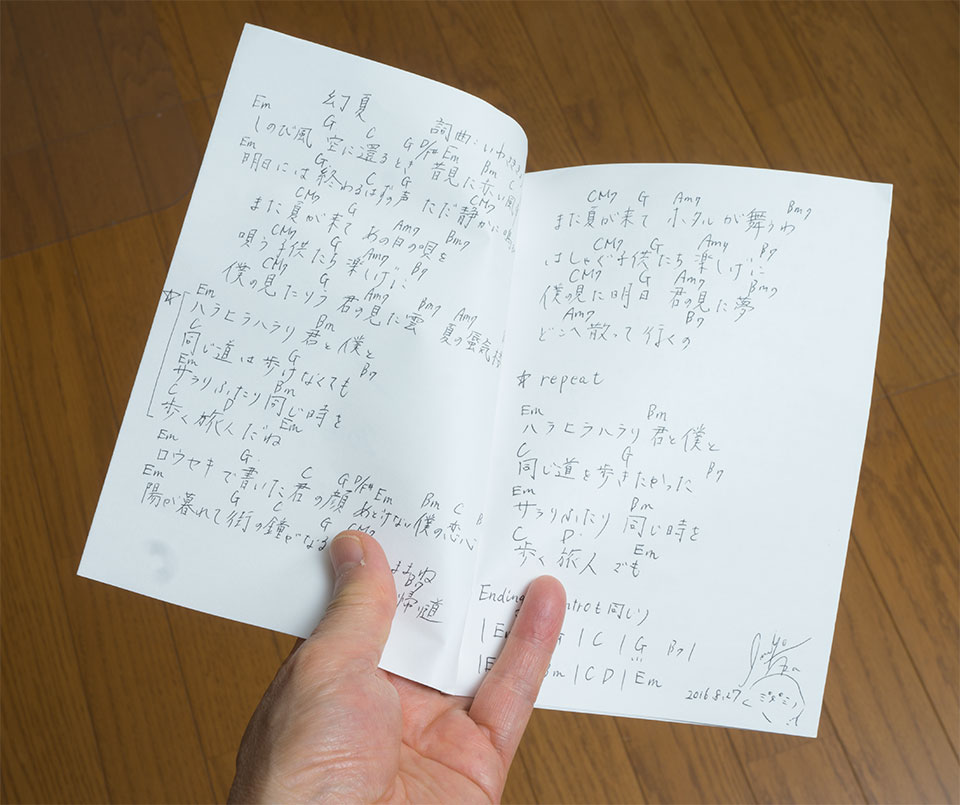 幻夏
詞曲:いわさき
Em G C G D/F# Em Bm C
しのび風 空に還るとき 昔見た赤い風
Em G C G CM7
明日には終わるはずの声 ただ静かに
CM7 G Am7 Bm7
また夏が来て あの日の唄を
CM7 G Am7 B7
唄う子供たち 楽しげに
CM7 G Am7 Bm7 Am7
僕の見たりう 君の見た雲 夏の蜃気楼
☆ Em Bm
ハラヒラハラリ 君と僕と
C G B7
同じ道は歩けなくても
Em Bm
サラリふたり 同じ時を
C D Em
歩く旅人だね
Em G C G D/F# Em Bm C B
ロウセキで書いた君の顔 あどけない僕の恋心
Em G C G CM7
陽が暮れて街の鐘がなる
B7
帰り道
CM7 G Am7 Bm7
また夏が来て ホタルが舞うわ
CM7 G Am7 B7
はしゃぐ子供たち 楽しげに
CM7 G Am7 Bm7
僕の見た明日 君の見た夢
Am7 B7
どこへ散って行くの
☆ repeat
Em Bm
ハラヒラハラリ 君と僕と
C G B7
同じ道を歩きたかった
Em Bm
サラリふたり 同じ時を
C D Em
歩く旅人 でも
Ending introも同じ
| Em G | C | G B7 |
| E Bm | C D | Em
2016.8.27